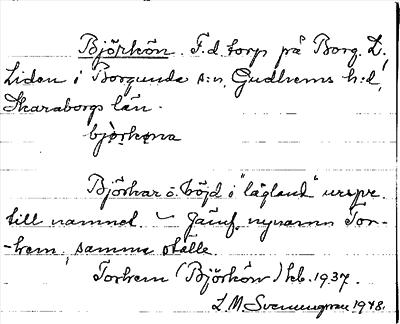 Björkön. F.d. torp på Borg. L.
Liden i Borgunda s:n, Gudhems h:d,
Skaraborgs län.
björkena
Björkar o. höjd i "lägland" urspr.
till namnet. – Jämf. nynamn Tor-
-hem, samma ställe.
Torhem (Björkön) kb. 1937.
L.M. Svenungsson 1948.